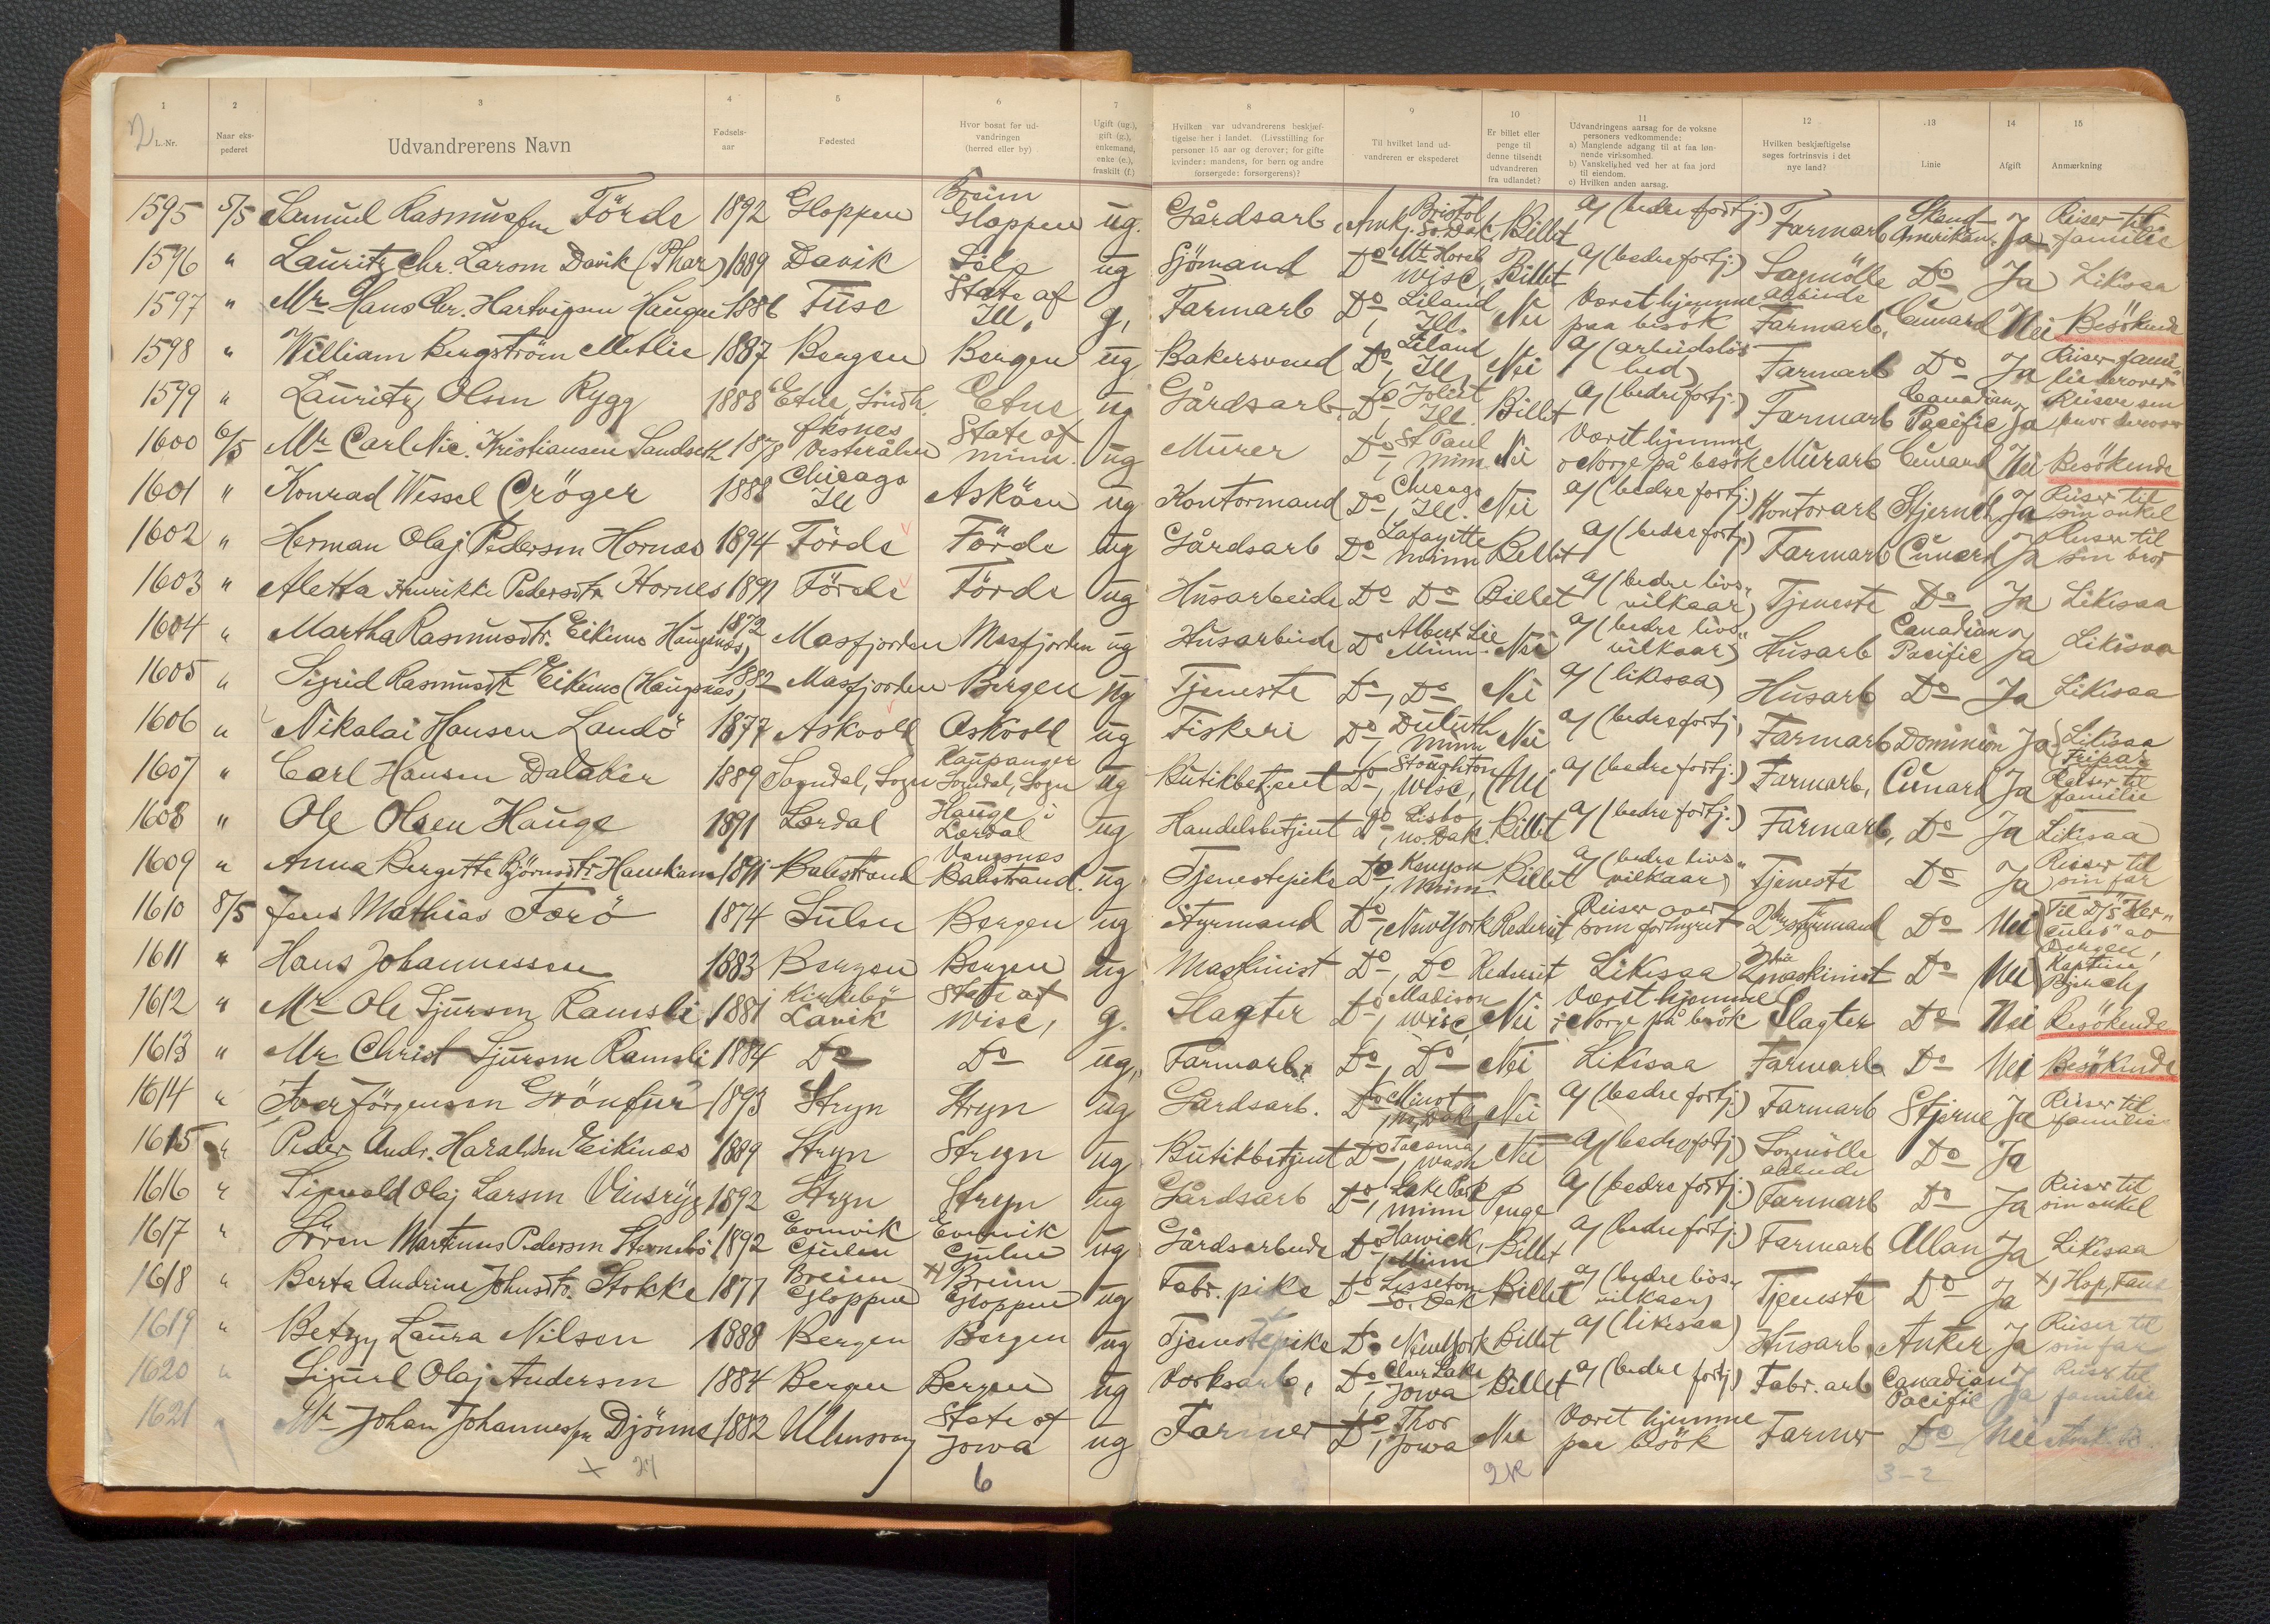 1 2 3 4 5 6 7 8 9 10 11 12 13 14 15
L.-Nr. Naar eks-pederet Udvandrerens Navn Fødsels-aar Fødested Hvor bosat før ud-vandringen (herred eller by) Ugift (ug.), gift (g.), enkemand, enke (e.), fraskilt (f.) Hvilken var udvandrerens beskjæf-tigelse her i landet. (Livsstilling for personer 15 aar og derover; for gifte kvinder: mandens, for børn og andre forsørgede: forsørgerens)? Til hvilket land ud-vandreren er ekspederet Er billet eller penge til denne tilsendt udvandreren fra udlandet? Udvandringens aarsag for de voksne personers vedkommende: a) Manglende adgang til at faa løn-nende virksomhed. b) Vanskelighed ved her at faa jord til eiendom. c) Hvilken anden aarsag. Hvilken beskjæftigelse søges fortrinsvis i det nye land? Linie Afgift Anmerkning
1595 5/5 Samuel Rasmussen Förde 1892 Gloppen Breim Gloppen ug. Gårdsarb. Amk. Bristol So. Dak. Billet a) (bedre fortj.) Farmarb Skand. Amerikan. Ja Reiser til familie
1596 " Lauritz Chr. Larsen Davik (Phar) 1889 Davik Selje ug Sjömand Do Mt. Horeb Wisc. Billet a) (bedre fortj.) Sagmölle arbeide Do Ja Likesaa
1597 " Mr Hans Chr. Hartvigsen Haugen 1886 Fuse State of Ill. g. Farmarb Do, Leland Ill. Nei Været hjemme paa besök Farmarb. Cunard Nei Besökende
1598 " William Bergström Metlie 1887 Bergen Bergen ug Bakersvend Do, Leland Ill. Nei a) (arbeidslös hed) Farmarb Do Ja Reiser fami lie derover
1599 " Lauritz Olsen Rygg 1888 Etne, Söndh. Etne ug Gårdsarb. Do, Joliet Ill. Billet a) (bedre fortj.) Farmarb Canadian Pacific Ja
1600 6/5 Mr Carl Nic. Kristiansen Sandseth 1878 Öksnes Vesterålen State of Minn. ug Murer Do, St Paul Minn Nei Været hjemme i Norge på besök Murarb Cunard Nei Besökende
1601 " Konrad Wessel Cröger 1888 Chicago Ill Asköen ug Kontormand Do, Chicago Ill. Nei a) (bedre fortj.) Kontorarb Stjernel. Ja Reiser til sin onkel
1602 " Herman Olaj Pedersen Hornes 1894 Förde Förde ug Gårdsarb Do Lafayette Minn Billet a) (bedre fortj.) Farmarb Cunard Ja Reiser til sin bror
1603 " Aletta Henrikke Pedersdtr Hornes 1891 Förde Förde ug Husarbeide Do Do Billet a) (bedre livs vilkaar) Tjeneste Do Ja Likesaa
1604 " Martha Rasmusdtr. Eikimo (Haugsnæs) 1872 Masfjorden Masfjorden ug Husarbeide Do Albert Lee Minn. Nei a) (bedre livs vilkaar) Husarb Canadian Pacific Ja Likesaa
1605 " Sigrid Rasmusdtr Eikimo (Haugsnæs) 1882 Masfjorden Bergen ug Tjeneste Do, Do Nei a) (likesaa) Husarb Do Ja Likesaa
1606 " Nikolai Hansen Landö 1877 Askvold Askvold ug Fiskeri Do, Duluth Minn Nei a) (bedre fortj.) Farmarb Dominion Ja Likesaa
1607 " Carl Hansen Dalaker 1889 Sogndal, Sogn Kaupanger Sogndal, Sogn ug Butikbetjent Do, Stoughton Wisc, Nei a) (bedre fortj.) Farmarb. Cunard Ja Reiser til familie
1608 " Ole Olsen Hauge 1891 Lærdal Hauge i Lærdal ug Handelsbetjent Do, Lisbo No. Dak. Billet a) (bedre fortj.) Farmarb. Do Ja Likesaa
1609 " Anna Bergitte Björnsdtr. 1891 Balestrand Vangsnes Balestrand. ug Tjenestepike Do, Kenyon Minn Billet a) (bedre livs vilkaar) Tjeneste Do Ja Reiser til sin far
1610 8/5 Jens Mathias Forö 1874 Sulen Bergen ug Styrmand Do, New York Rederiet Reiser over som forhyret 2den styrmand Do Nei Til D/S "Her-cules" av Bergen,
1611 " Hans Johannessen 1883 Bergen Bergen ug Maskinist Do, Do Rederiet Likesaa 2den maskinist Do Nei Kaptein
1612 " Mr Ole Sjursen Ramsli 1881 Kirkebö Lavik State of Wisc, g. Slagter Do, Madison Wisc, Nei Været hjemme i Norge på besök Slagter Do Nei Besökende
1613 " Mr Christ Sjursen Ramsli 1884 Do Do ug, Farmarb. Do, Do Nei Likesaa Farmarb Do Nei Besökende
1614 " Iver Jörgensen Grönfur 1893 Stryn Stryn ug Gårdsarb. Do Minot No. Dak, Nei a) (bedre fortj.) Farmarb Stjerne Ja Reiser til familie
1615 " Peder Andr. Haraldsen Eikenæs 1889 Stryn Stryn ug Butikbetjent Do, Tacoma Wash Nei a) (bedre fortj.) Sagmölle arbeide Do Ja
1616 " Sigvald Olaj Larsen Vinsryg 1892 Stryn Stryn ug Gårdsarb Do, Lake Park Minn Penge a) (bedre fortj.) Farmarb Do Ja Reiser til sin onkel
1617 " Sören Martinus Pedersen Stensbö 1892 Evenvik Gulen Evenvik Gulen ug Gårdsarbeide Do Hawick, Minn Billet a) (bedre fortj.) Farmarb Allan Ja Likesaa
1618 " Berta Andrine Johnsdtr. Stokke 1877 Breim Gloppen x) Breim Gloppen ug Fabr. pike Do Sisseton So. Dak Billet a) (bedre livs vilkaar) Tjeneste Do Ja x) Hop, Fane
1619 " Betzy Laura Nilsen 1888 Bergen Bergen ug Tjenestepike Do New York Billet a) (likesaa) Husarb. Anker Ja Reiser til sin far
1620 " Sigurd Olaj Andersen 1884 Bergen Bergen ug Værksarb, Do Clear Lake Jowa Billet a) (bedre fortj.) Fabr. arb Canadian Pacific Ja Reiser til familie
1621 " Mr Johan Johannessen Djönne 1882 Ullensvang State of Jowa ug Farmer Do, Thor Jowa Nei Været hjemme paa besök Farmer Do Nei
x 27 6 2 3-2